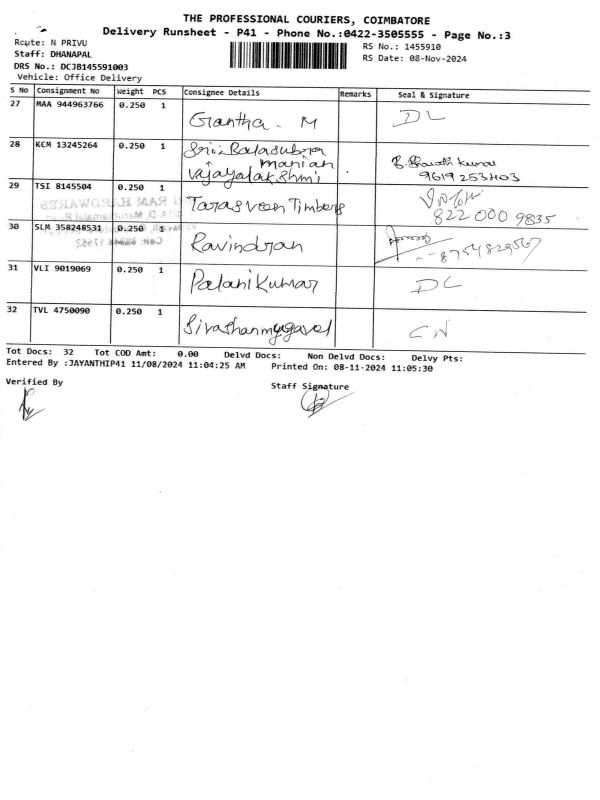 THE PROFESSIONAL COURIERS, COIMBATORE
Delivery Runsheet - P41 - Phone No.:0422-3505555 - Page No.:3
Route: N PRIVU
RS No.: 1455910
Staff: DHANAPAL
RS Date: 08-Nov-2024
DRS No.: DCJB145591003
Vehicle: Office Delivery
S No Consignment No Weight PCS Consignee Details Remarks Seal & Signature
27 MAA 944963766 0.250 1 Gantha. M DL
28 KCM 13245264 0.250 1 Sri. Balasubra
manian
Vijayalakshmi
B. Bharathi Kumar
9619253403
29 TSI 8145504 0.250 1 Taras veen Timbers
822 000 9835
RAM HARDWARES
30 SLM 358248531 0.250 1 Ravindran 8754829567
31 VLI 9019069 0.250 1 Palani Kumar DL
32 TVL 4750090 0.250 1 Sivashanmugavel CN
Tot Docs: 32 Tot COD Amt: 0.00 Delvd Docs: Non Delvd Docs: Delvy Pts:
Entered By :JAYANTHIP41 11/08/2024 11:04:25 AM Printed On: 08-11-2024 11:05:30
Verified By
Staff Signature